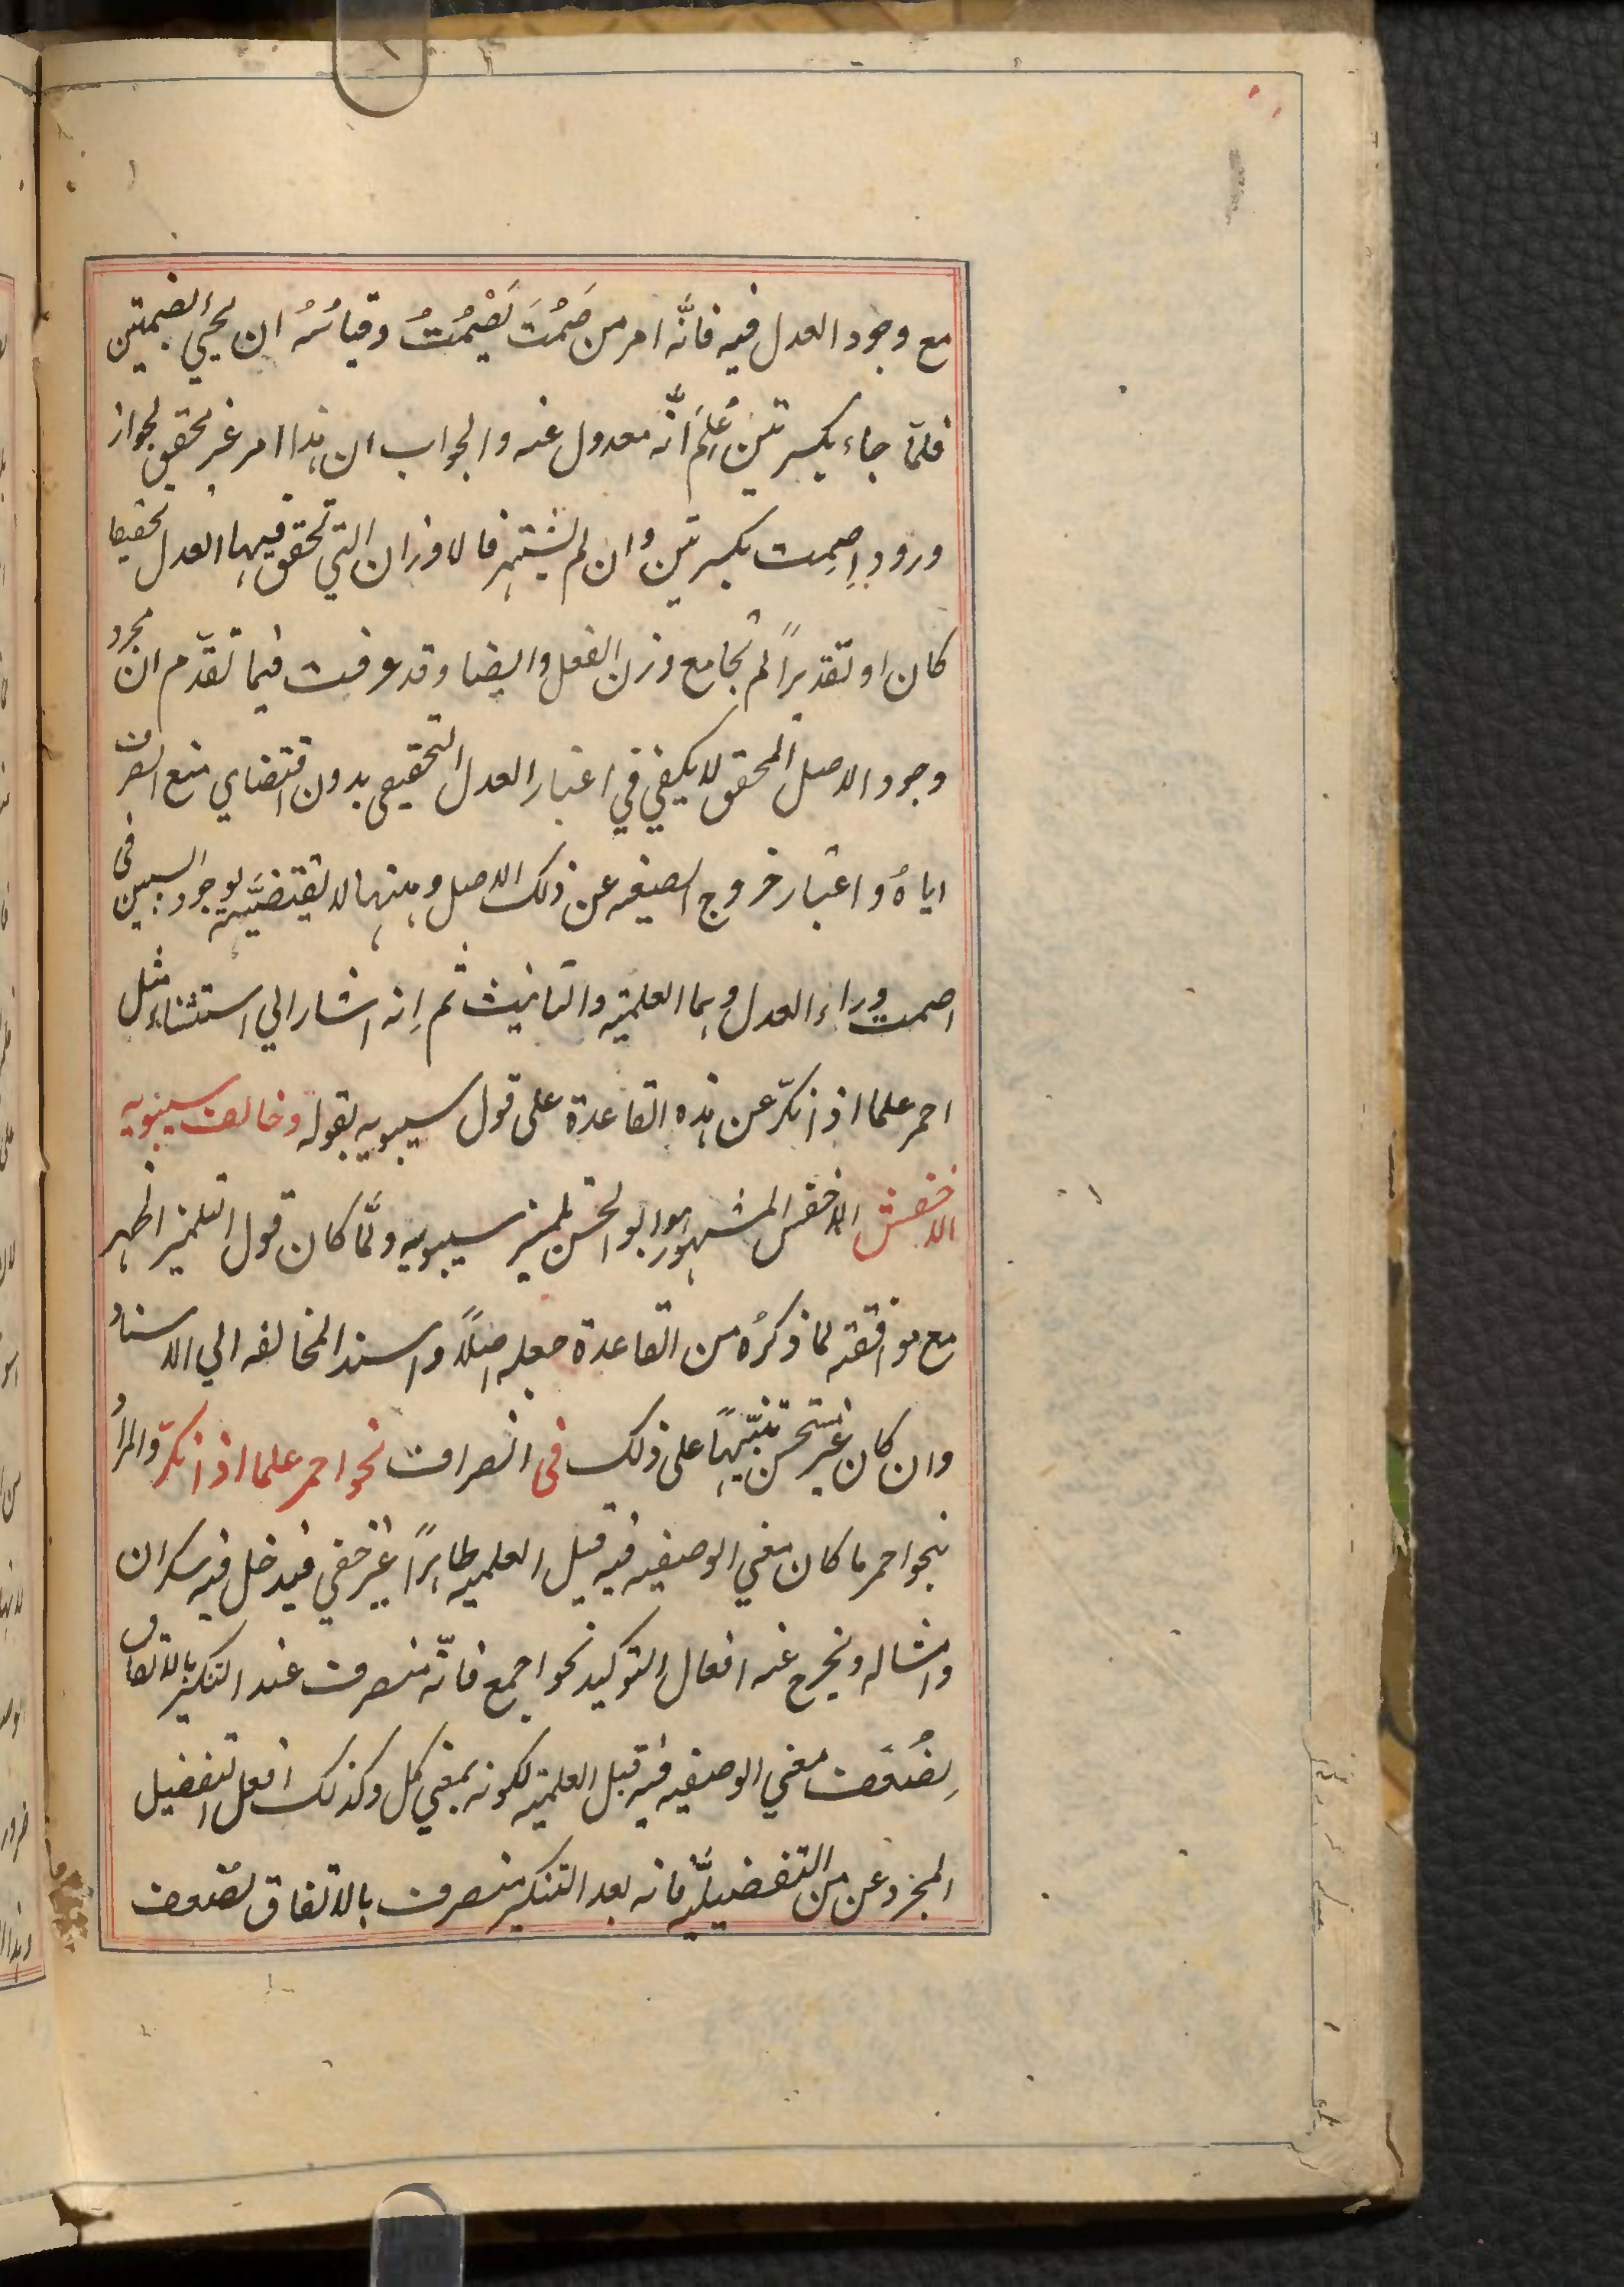 مع وجود العدل فيه فانَّه امر من صَمُتَ يَصْمُتُ وقياسُهُ ان يجيُ بضمتين
فلمّا جاء بكسرتين عُلِمَ انَّه معدول عنه والجواب ان هذا امر غير محقق لجواز
ورود اِصمِت بكسرتين وان لم يشتهر فالاوزان التي تحقق فيها العدل تحقيقا
كان او تقديراً لم تجامع وزن الفعل وايضا وقد عرفت فيما تقدّم ان مجرد
وجود الاصل المحقق لا يكفي في اعتبار العدل التحقيقي بدون اقتضاي منع الصرف
اياهُ واعتبار خروج الصيغه عن ذلك الاصل وههنا لا يقتضيَّه لوجود السببين فى
اصمت وراء العدل وهما العلميّه والتانيث ثم اِنه اشار الي استثناء مثل
احمر علما اذا نكّر عن هذه القاعدة على قول سيبويه بقوله وخالف سيبويه
الاخفش الاخفش المشهور هو ابو الحسن تلميذ سيبويه ولمَّا كان قول التلميذ اظهر
مع موافقته لما ذكرُه من القاعدة جعله اصلاً واسند المخالفه الي الاستاد
وان كان غير مستحسن تنبّيهاً على ذلك فى انصراف نحو احمر علما اذا نكرّ والمراد
بنحو احمر ما كان معني الوصفيه فيه قبل العلميه ظاهراً غير خفي فيدخل فيه سكران
وامثاله ويخرج عنه افعال التوكيد نحو اجمع فانّه منصرف عند التنكير بالاتفاق
لِضُعَف معني الوصفيه فيه قبل العلميّه لكونه بمعني كل وكذلك افعل التفضيل
المجرد عن من التفضيليَّه فانه بعد التنكير منصرف بالاتفاق لضعف